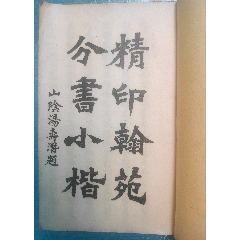 精印翰苑
分書小楷
山陰湯壽潛題